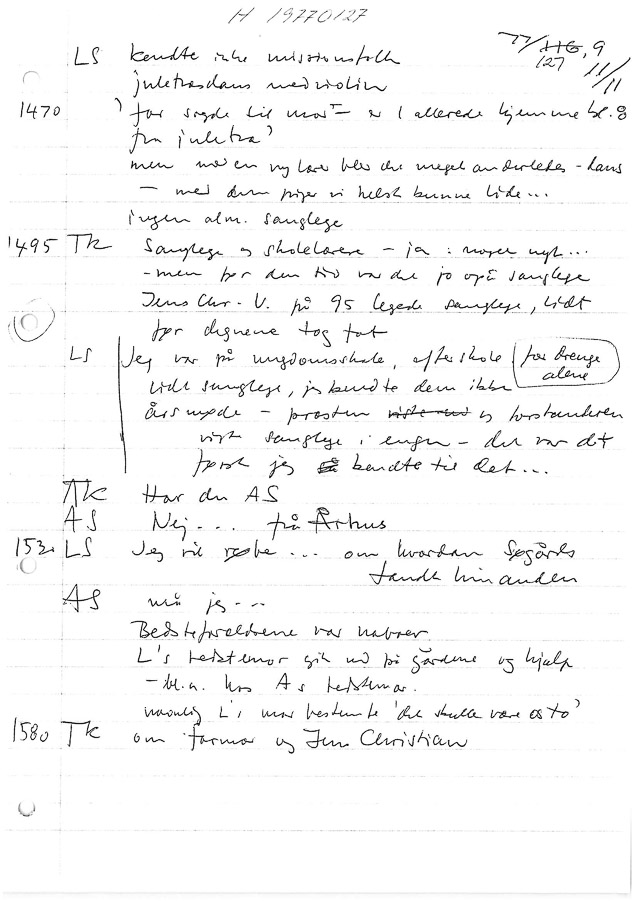 H 19770127
77/116, 9
127
11/11
LS kendte ikke missionsfolk
juletræsdans med violin
1470 'far sagde til mor - er I allerede hjemme kl. 8
fra juletræ'
men når en ny lærer blev det meget anderledes - dans
- med dem piger vi helst kunne lide...
ingen alm. sanglege
1495 TK Sanglege og skolelærere - ja : noget nyt...
- men før den tid var det jo også sanglege
Jens Chr. V. på 95 legede sanglege, lidt
før degnene tog fat
LS Jeg var på ungdomsskole, efterskole for drenge alene
lidt sanglege, jeg kendte dem ikke
årsmøde - præsten og forstanderen
sanglege i engen - det var det
først jeg kendte til det...
TK Har du AS
AS Nej... på Århus
LS Jeg vil ... om hvordan
fandt hinanden
AS må jeg...
Bedsteforældrene var naboer
L's bedstemor gik ud på gårdene og hjalp
- bl.a. hos A's bedstemor.
L's mor bestemte 'det skulle være os to'
1580 TK om farmor og Jens Christian